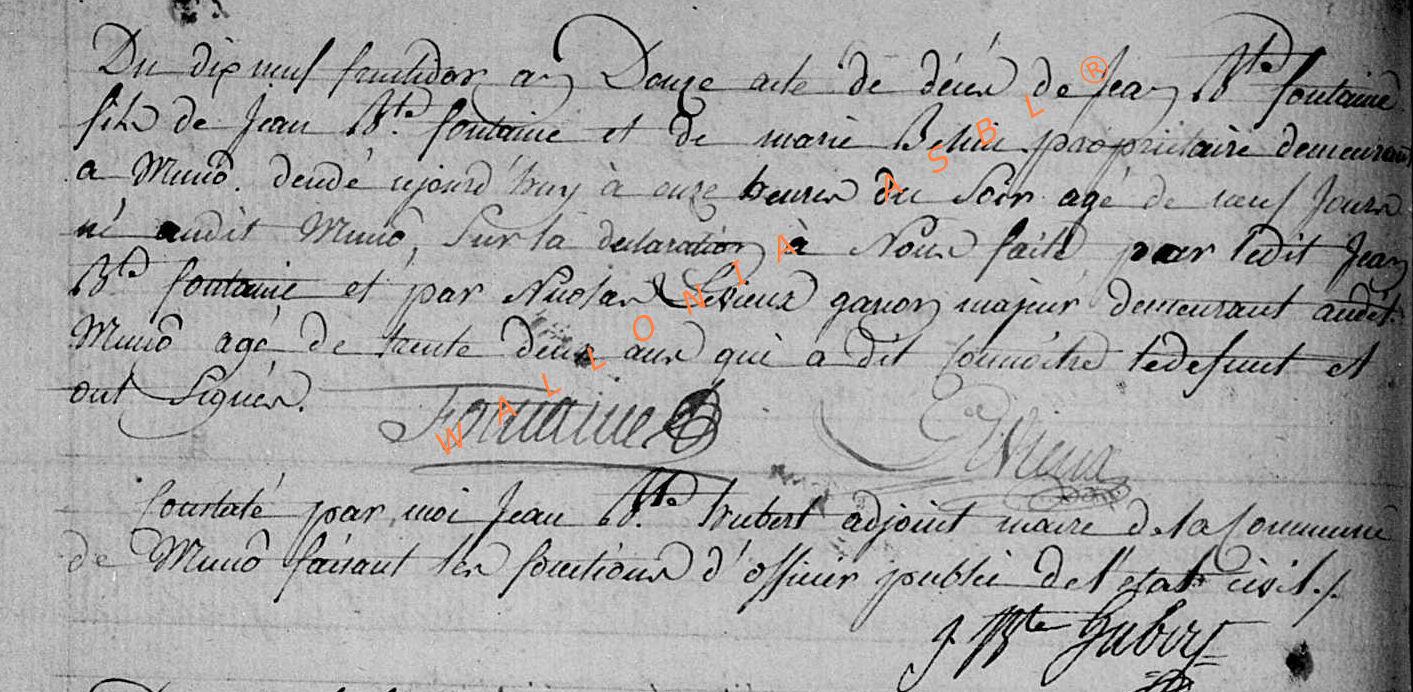 Du dix neuf fructidor an Douze acte de décès de Jean Bte fontaine
fils de Jean Bte. fontaine et de marie Belin propriétaire demeurant
a Munô. décédé cejourd'huy à onze heures du Soir agé de neuf Jours
né audit Munô, Sur la declaration à Nous faite par ledit Jean
Bte fontaine et par Nicolas Levieux garçon majeur demeurant audit
Munô agé de trente deux ans qui a dit connoitre le defunt et
ont Signés.
Fontaine Levieux
Constaté par moi Jean Bte. hubert adjoint maire de la Commune
de Munô faisant les fonctions d'officier public de l'etat civil./.
J Bte Hubert
WALLONIA ASBL ®